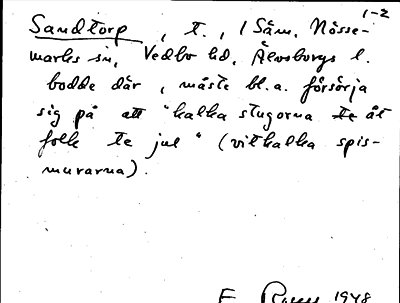 1-2
Sandtorp, t., i Säm, Nösse-
marks sn, Vedbo hd, Älvsborgs l.
bodde där, måste bl.a. försörja
sig på att "kalka stugorna te åt
folk te jul" (vitkalka spis-
murarna).
E. 1948